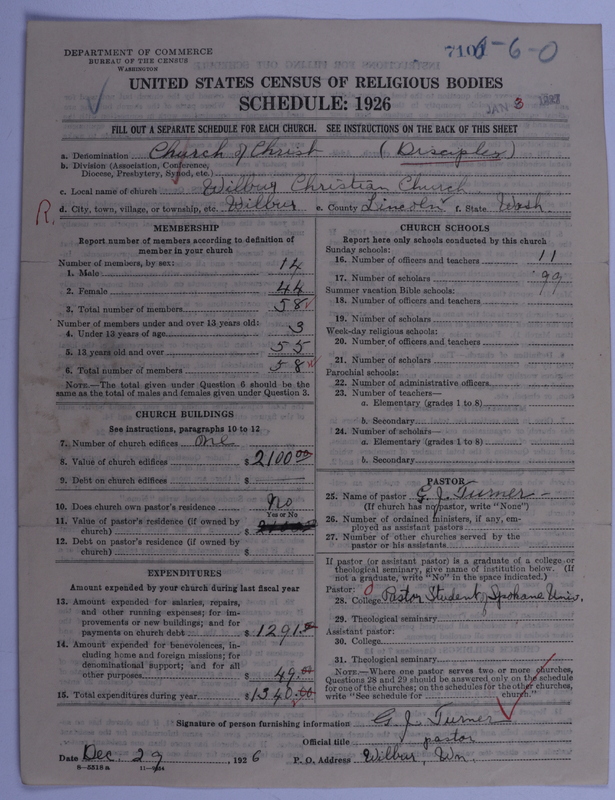 DEPARTMENT OF COMMERCE
BUREAU OF THE CENSUS
WASHINGTON
6-6-0
JAN 3 1927
UNITED STATES CENSUS OF RELIGIOUS BODIES
SCHEDULE: 1926
FILL OUT A SEPARATE SCHEDULE FOR EACH CHURCH. SEE INSTRUCTIONS ON THE BACK OF THIS SHEET
a. Denomination Church of Christ (Disciples)
b. Division (Association, Conference, Diocese, Presbytery, Synod, etc.)
c. Local name of church Wilbur Christian Church
R. d. City, town, village, or township, etc. Wilbur e. County Lincoln f. State Wash
MEMBERSHIP
Report number of members according to definition of member in your church
Number of members, by sex:
1. Male 14
2. Female 44
3. Total number of members 58
Number of members under and over 13 years old:
4. Under 13 years of age 3
5. 13 years old and over 55
6. Total number of members 58
NOTE.—The total given under Question 6 should be the same as the total of males and females given under Question 3.
CHURCH BUILDINGS
See instructions, paragraphs 10 to 12
7. Number of church edifices One
8. Value of church edifices $ 2100.00
9. Debt on church edifices $
10. Does church own pastor's residence? No
Yes or No
11. Value of pastor's residence (if owned by church) $
12. Debt on pastor's residence (if owned by church) $
EXPENDITURES
Amount expended by church during last fiscal year
13. Amount expended for salaries, repairs, and other running expenses; for improvements or new buildings; and for payments on church debt $ 1291.00
14. Amount expended for benevolences, including home and foreign missions; for denominational support; and for all other purposes $ 49.00
15. Total expenditures during year $ 1340.00
CHURCH SCHOOLS
Report here only schools conducted by this church
Sunday schools:
16. Number of officers and teachers 11
17. Number of scholars 99
Summer vacation Bible schools:
18. Number of officers and teachers
19. Number of scholars
Week-day religious schools:
20. Number of officers and teachers
21. Number of scholars
Parochial schools:
22. Number of administrative officers
23. Number of teachers—
a. Elementary (grades 1 to 8)
b. Secondary
24. Number of scholars—
a. Elementary (grades 1 to 8)
b. Secondary
PASTOR
25. Name of pastor G. J. Turner
(If church has no pastor, write "None")
26. Number of ordained ministers, if any, employed as assistant pastors
27. Number of other churches served by the pastor or his assistants
If pastor (or assistant pastor) is a graduate of a college or theological seminary, give name of institution below. (If not a graduate, write "No" in the space indicated.)
Pastor: 0
28. College Pastor Student of Spokane Univ.
29. Theological seminary
Assistant pastor:
30. College
31. Theological seminary
NOTE.—Where one pastor serves two or more churches, Questions 28 and 29 should be answered only on the schedule for one of the churches; on the schedules for the other churches, write "See schedule for church."
Signature of person furnishing information G. J. Turner
Official title pastor
Date Dec. 29, 1926 P. O. Address Wilbur, Wn.
8-5518a